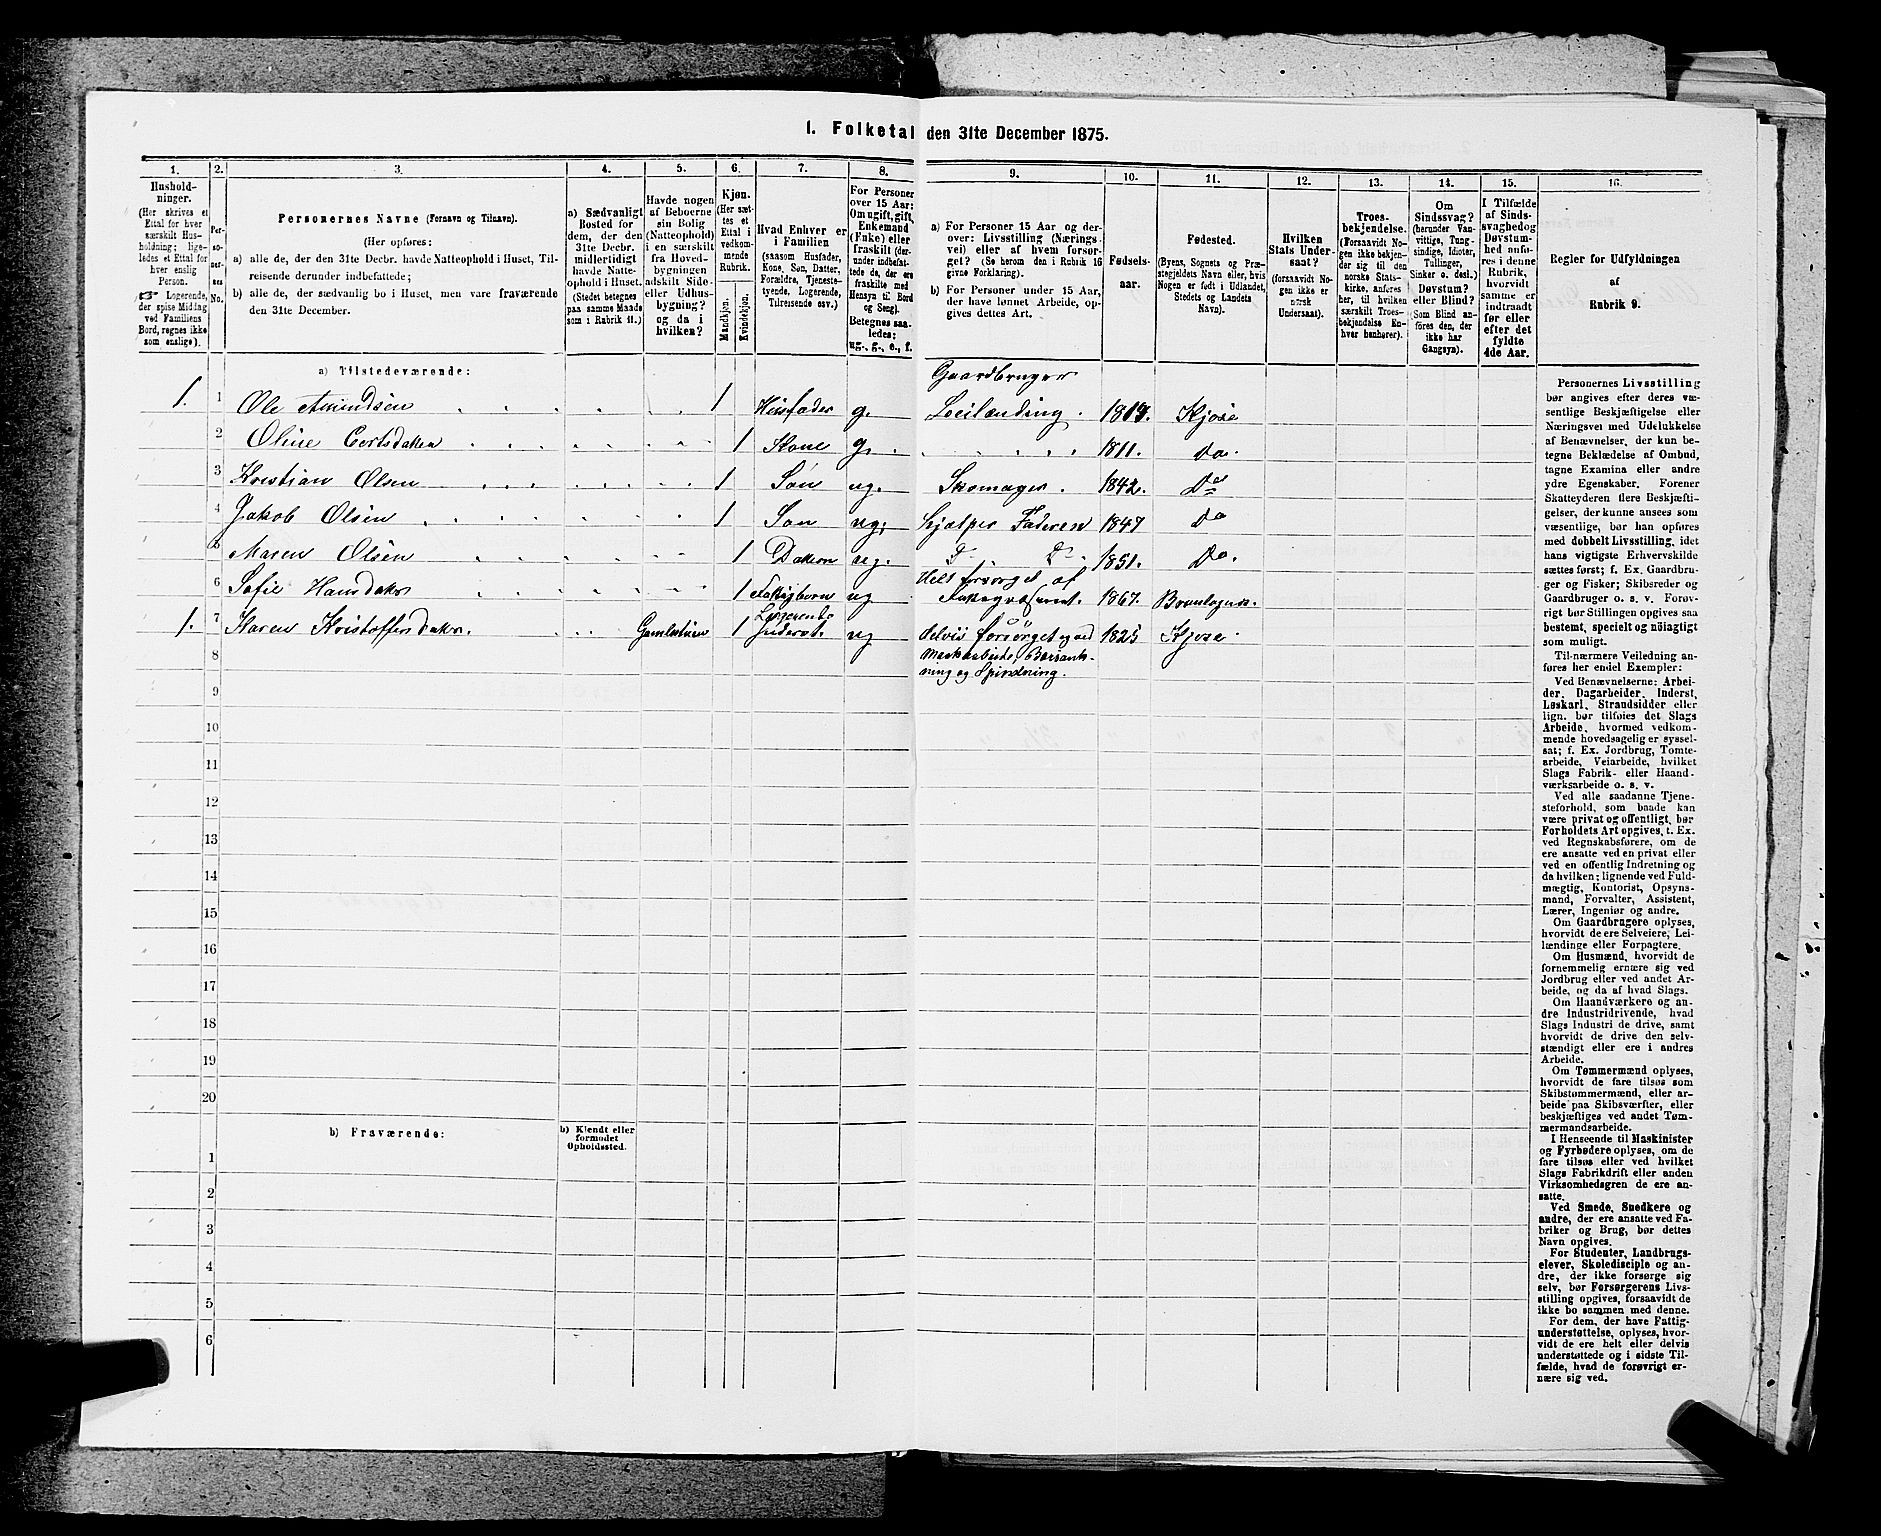 1. Folketal den 31te December 1875.
1. 2. 3. 4. 5. 6. 7. 8. 9. 10. 11. 12. 13. 14. 15. 16.
Hushold-
ninger.
(Her skrives et
Ettal for hver
særskilt Hus-
holdning; lige-
ledes et Ettal for
hver enslig
Person.
☞ Logerende,
der spise Middag
ved Familiens
Bord, regnes ikke
som enslige).
Per-
so-
ner-
nes
No.
Personernes Navne (Fornavn og Tilnavn).
(Her opføres:
a) alle de, der den 31te Decbr. havde Natteophold i Huset, Til-
reisende derunder indbefattede;
b) alle de, der sædvanlig bo i Huset, men vare fraværende
den 31te December.
a) Sædvanligt
Bosted for
dem, der den
31te Decbr.
midlertidigt
havde Natte-
ophold i Huset.
(Stedet betegnes
paa samme Maade
som i Rubrik 11.)
Havde nogen
af Beboerne
sin Bolig
(Natteophold)
i en særskilt
fra Hoved-
bygningen
adskilt Side-
eller Udhus-
bygning?
og da i
hvilken?
Kjøn.
(Her sæt-
tes et
Ettal i
vedkom-
mende
Rubrik.
Mandkjøn.
Kvindekjøn.
Hvad Enhver er
i Familien
(saasom Husfader,
Kone, Søn, Datter,
Forældre, Tjeneste-
tyende, Logerende,
Tilreisende osv.)
For Personer
over 15 Aar:
Om ugift, gift,
Enkemand
(Enke) eller
fraskilt (der-
under indbefat-
tede de, der ere
fraskilte med
Hensyn til Bord
og Seng).
Betegnes saa-
ledes:
ug., g., e., f.
a) For Personer 15 Aar og der-
over: Livsstilling (Nærings-
vei) eller af hvem forsør-
get? (Se herom den i Rubrik 16
givne Forklaring).
b) For Personer under 15 Aar,
der have lønnet Arbeide, op-
gives dettes Art.
Fødsels-
aar.
Fødested.
(Byens, Sognets og Præ-
stegjeldets Navn eller, hvis
Nogen er født i Udlandet,
Stedets og Landets
Navn).
Hvilken
Stats Under-
saat?
(forsaavidt No-
gen ikke er
norsk
Undersaat).
Troes-
bekjendelse.
(Forsaavidt No-
gen ikke bekjen-
der sig til den
norske Stats-
kirke, anføres
her, til hvilken
særskilt Troes-
bekjendelse En-
hver henhører).
Om
Sindssvag?
(herunder Van-
vittige, Tung-
sindige, Idioter,
Tullinger,
Sinker o. desl.)
Døvstum?
eller Blind?
(Som Blind an-
føres den, der
ikke har
Gangsyn).
I Tilfælde
af Sinds-
svaghed og
Døvstum-
hed anfø-
res i denne
Rubrik,
hvorvidt
samme er
indtraadt
før eller
efter det
fyldte
4de Aar.
Regler for Udfyldningen
af
Rubrik 9.
a) Tilstedeværende:
1. 1 Ole Amundsen 1 Husfader g. Gaardbruger
Leilænding. 1819. Kjose
2 Oline Evertsdatter 1 Kone g. 1811. Do.
3 Kristian Olsen 1 Søn ug. Skomager. 1842. Do
4 Jakob Olsen 1 Søn ug. Hjælper Faderen 1847 Do
5 Maren Olsen 1 Datter ug. D. D. 1851. Do.
6 Sofie Hansdatter 1 Fattigbarn ug Helt forsørget af
Fattigvæsenet. 1867. Brunlagnæs.
1. 7 Karen Kristoffersdatter. 1 Logerende
Inderst. ug Delvis forsørget og ved 1825 Kjose.
8
ning og Spindning.
9
10
11
12
13
14
15
16
17
18
19
20
b) Fraværende:
b) Kjendt eller
formodet
Opholdssted.
1
2
3
4
5
6
Personernes Livsstilling
bør angives efter deres væ-
sentlige Beskjæftigelse eller
Næringsvei med Udelukkelse
af Benævnelser, der kun be-
tegne Beklædelse af Ombud,
tagne Examina eller andre
ydre Egenskaber. Forener
Skatteyderen flere Beskjæfti-
gelser, der kunne ansees som
væsentlige, bør han opføres
med dobbelt Livsstilling, idet
hans vigtigste Erhvervskilde
sættes først; f. Ex. Gaardbru-
ger og Fisker; Skibsreder og
Gaardbruger o. s. v. Forøv-
rigt bør Stillingen opgives saa
bestemt, specielt og nøiagtigt
som muligt.
Til nærmere Veiledning an-
føres her endel Exempler:
Ved Benævnelserne: Arbei-
der, Dagarbeider, Inderst,
Løskarl, Strandsidder eller
lign. bør tilføies det Slags
Arbeide, hvormed vedkom-
mende hovedsagelig er syssel-
sat; f. Ex. Jordbrug, Tomte-
arbeide, Veiarbeide, hvilket
Slags Fabrik- eller Haand-
værksarbeide o. s. v.
Ved alle saadanne Tjene-
steforhold, som baade kan
være privat og offentligt, bør
Forholdets Art opgives, t. Ex.
ved Regnskabsførere, om de
ere ansatte ved en privat eller
ved en offentlig Indretning og
da hvilken; lignende ved Fuld-
mægtig, Kontorist, Opsyns-
mand, Forvalter, Assistent,
Lærer, Ingeniør og andre.
Om Gaardbrugere oplyses,
hvorvidt de ere Selveiere, Lei-
lændinge eller Forpagtere.
Om Husmænd, hvorvidt de
fornemmelig ernære sig ved
Jordbrug eller ved andet Ar-
beide, og da af hvad Slags.
Om Haandværkere og an-
dre Industridrivende, hvad
Slags Industri de drive, samt
hvorvidt de drive den selv-
stændigt eller ere i andres
Arbeide.
Om Tømmermænd oplyses,
hvorvidt de fare tilsøs som
Skibstømmermænd, eller ar-
beide paa Skibsværfter, eller
beskjæftiges ved andet Tøm-
mermandsarbeide.
I Henseende til Maskinister
og Fyrbødere oplyses, om de
fare tilsøs eller ved hvilket
Slags Fabrikdrift eller anden
Virksomhedsgren de ere an-
satte.
Ved Smede, Snedkere og
andre, der ere ansatte ved Fa-
briker og Brug, bør dettes
Navn opgives.
For Studenter, Landbrugs-
elever, Skoledisciple og an-
dre, der ikke forsørge sig
selv, bør Forsørgerens Livs-
stilling opgives, forsaavidt de
ikke bo sammen med denne.
For dem, der have Fattig-
understøttelse, oplyses, hvor-
vidt de ere helt eller delvis
understøttede og i sidste Til-
fælde, hvad de forøvrigt er-
nære sig ved.